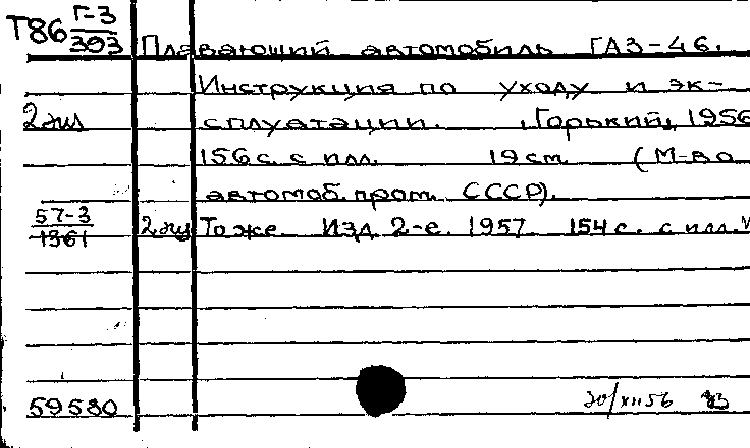 Т86 Г-3
303 Плавающий автомобиль ГАЗ-46.
Инструкция по уходу и эк-
2 экз сплуатации. Горький, 1956
156 с. с илл. 19 см. (М-во
автомоб. пром. СССР).
57-3
1361 2 экз То же. Изд. 2-е. 1957 154 с. с илл.
59580 20/XII 56